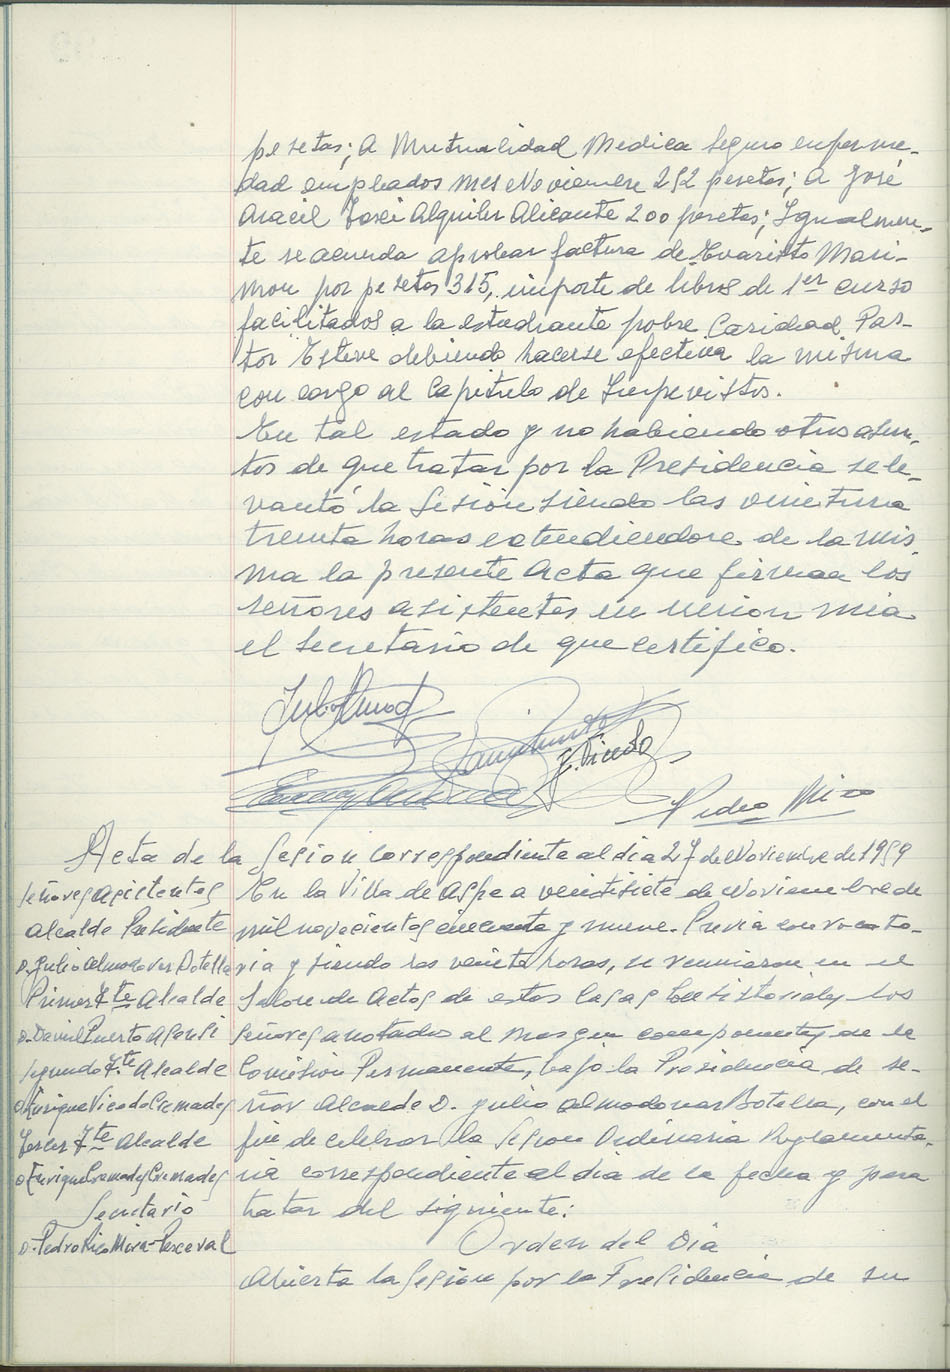 pesetas; A Mutualidad Medica Seguro enferme-
dad empleados mes Noviembre 252 pesetas; A José
Aracil Alquiler Alicante 200 pesetas; Igualmen-
te se acuerda aprobar factura de Evaristo Mari-
mon por pesetas 315, importe de libros de 1er curso
facilitados a la estudiante pobre Caridad Pas-
tor Esteve debiendo hacerse efectiva la misma
con cargo al Capitulo de Imprevistos.
En tal estado y no habiendo otros asun-
tos de que tratar por la Presidencia se le-
vantó la Sesión siendo las veintiuna
treinta horas extendiendose de la mis-
ma la presente Acta que firman los
señores asistentes en union mia
el Secretario de que certifico.
J. Vicedo
Pedro Mira
Acta de la Sesion correspondiente al dia 27 de Noviembre de 1959
Señores asistentes
Alcalde Presidente
D. Julio Almodovar Botella
Primer Tte Alcalde
D. David Puerto Asensi
Segundo Tte Alcalde
D. Enrique Vicedo Cremades
Tercer Tte Alcalde
D. Enrique Cremades Cremades
Secretario
D. Pedro Rico Mira-Perceval
En la Villa de Aspe a veintisiete de Noviembre de
mil novecientos cincuenta y nueve. Previa convocato-
ria y siendo las veinte horas, se reunieron en el
Salon de Actos de estas Casas Consistoriales los
señores anotados al margen componentes de la
Comision Permanente, bajo la Presidencia de se-
ñor Alcalde D. Julio Almodovar Botella, con el
fin de celebrar la Sesion Ordinaria Reglamenta-
ria correspondiente al dia de la fecha y para
tratar del siguiente:
Orden del Dia
Abierta la Sesion por la Presidencia de su